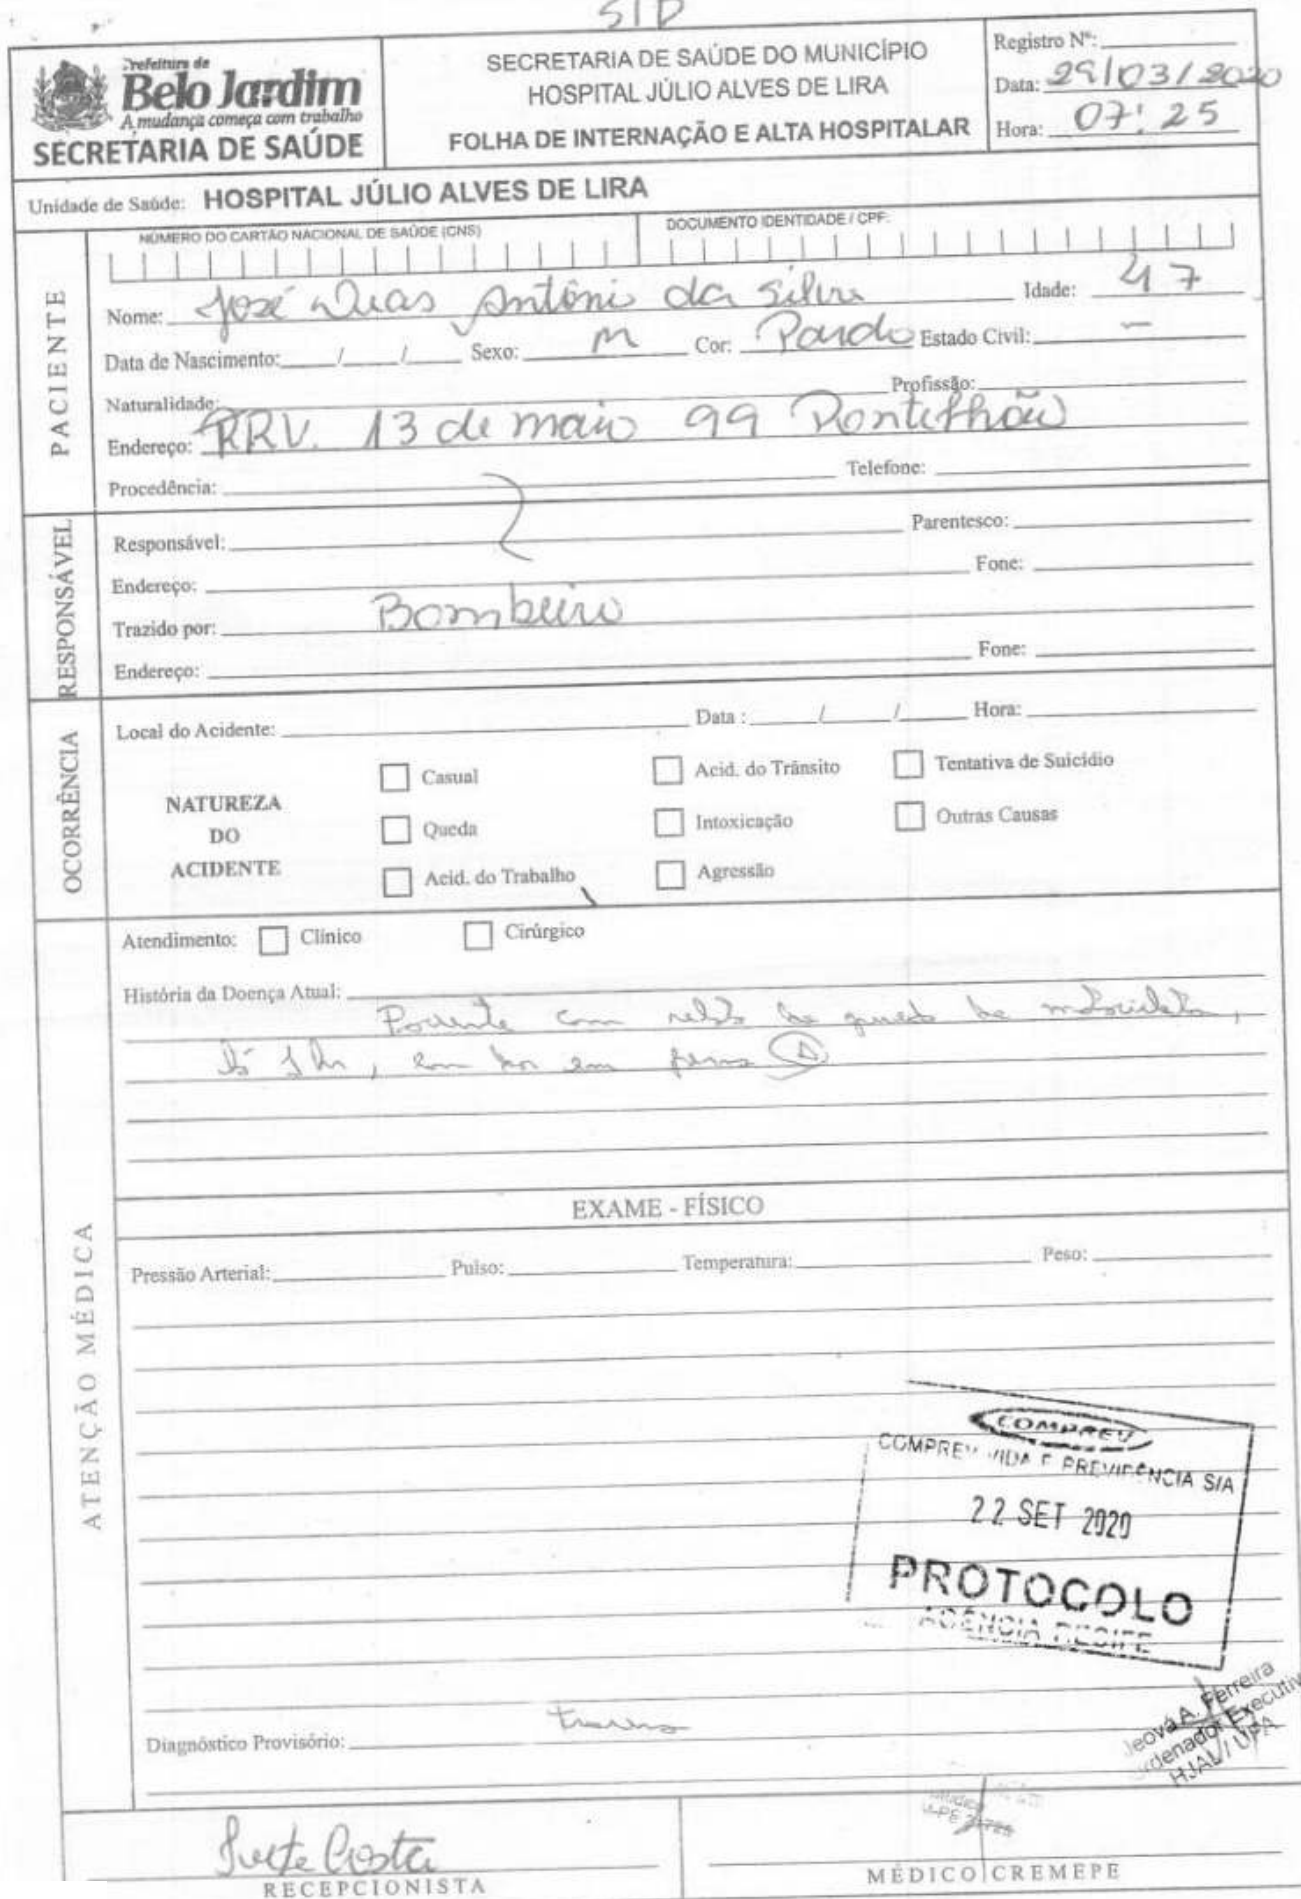 SID
Prefeitura de
Belo Jardim
A mudança começa com trabalho
SECRETARIA DE SAÚDE
SECRETARIA DE SAÚDE DO MUNICÍPIO
HOSPITAL JÚLIO ALVES DE LIRA
FOLHA DE INTERNAÇÃO E ALTA HOSPITALAR
Registro Nº:
Data: 29/03/2020
Hora: 07:25
Unidade de Saúde: HOSPITAL JÚLIO ALVES DE LIRA
PACIENTE
NÚMERO DO CARTÃO NACIONAL DE SAÚDE (CNS) DOCUMENTO IDENTIDADE / CPF:
Nome: José Antônio da Silva Idade: 47
Data de Nascimento: / / Sexo: M Cor: Pardo Estado Civil: —
Naturalidade: Profissão:
Endereço: 13 de maio 99
Procedência: Telefone:
RESPONSÁVEL
Responsável: Parentesco:
Endereço: Fone:
Trazido por: Bombeiro
Endereço: Fone:
OCORRÊNCIA
Local do Acidente: Data : / / Hora:
NATUREZA DO ACIDENTE
Casual Acid. do Trânsito Tentativa de Suicídio
Queda Intoxicação Outras Causas
Acid. do Trabalho Agressão
ATENÇÃO MÉDICA
Atendimento: Clínico Cirúrgico
História da Doença Atual:
Paciente com relato de queda de motocicleta,
há 1h, com dor em perna D
EXAME - FÍSICO
Pressão Arterial: Pulso: Temperatura: Peso:
COMPREV
COMPREV VIDA E PREVIDÊNCIA S/A
22 SET 2020
PROTOCOLO
AGÊNCIA RECIFE
Jeová A. Ferreira
Coordenador Executivo
HJAL / UPA
Diagnóstico Provisório: trauma
Costa
RECEPCIONISTA
MÉDICO CREMEPE